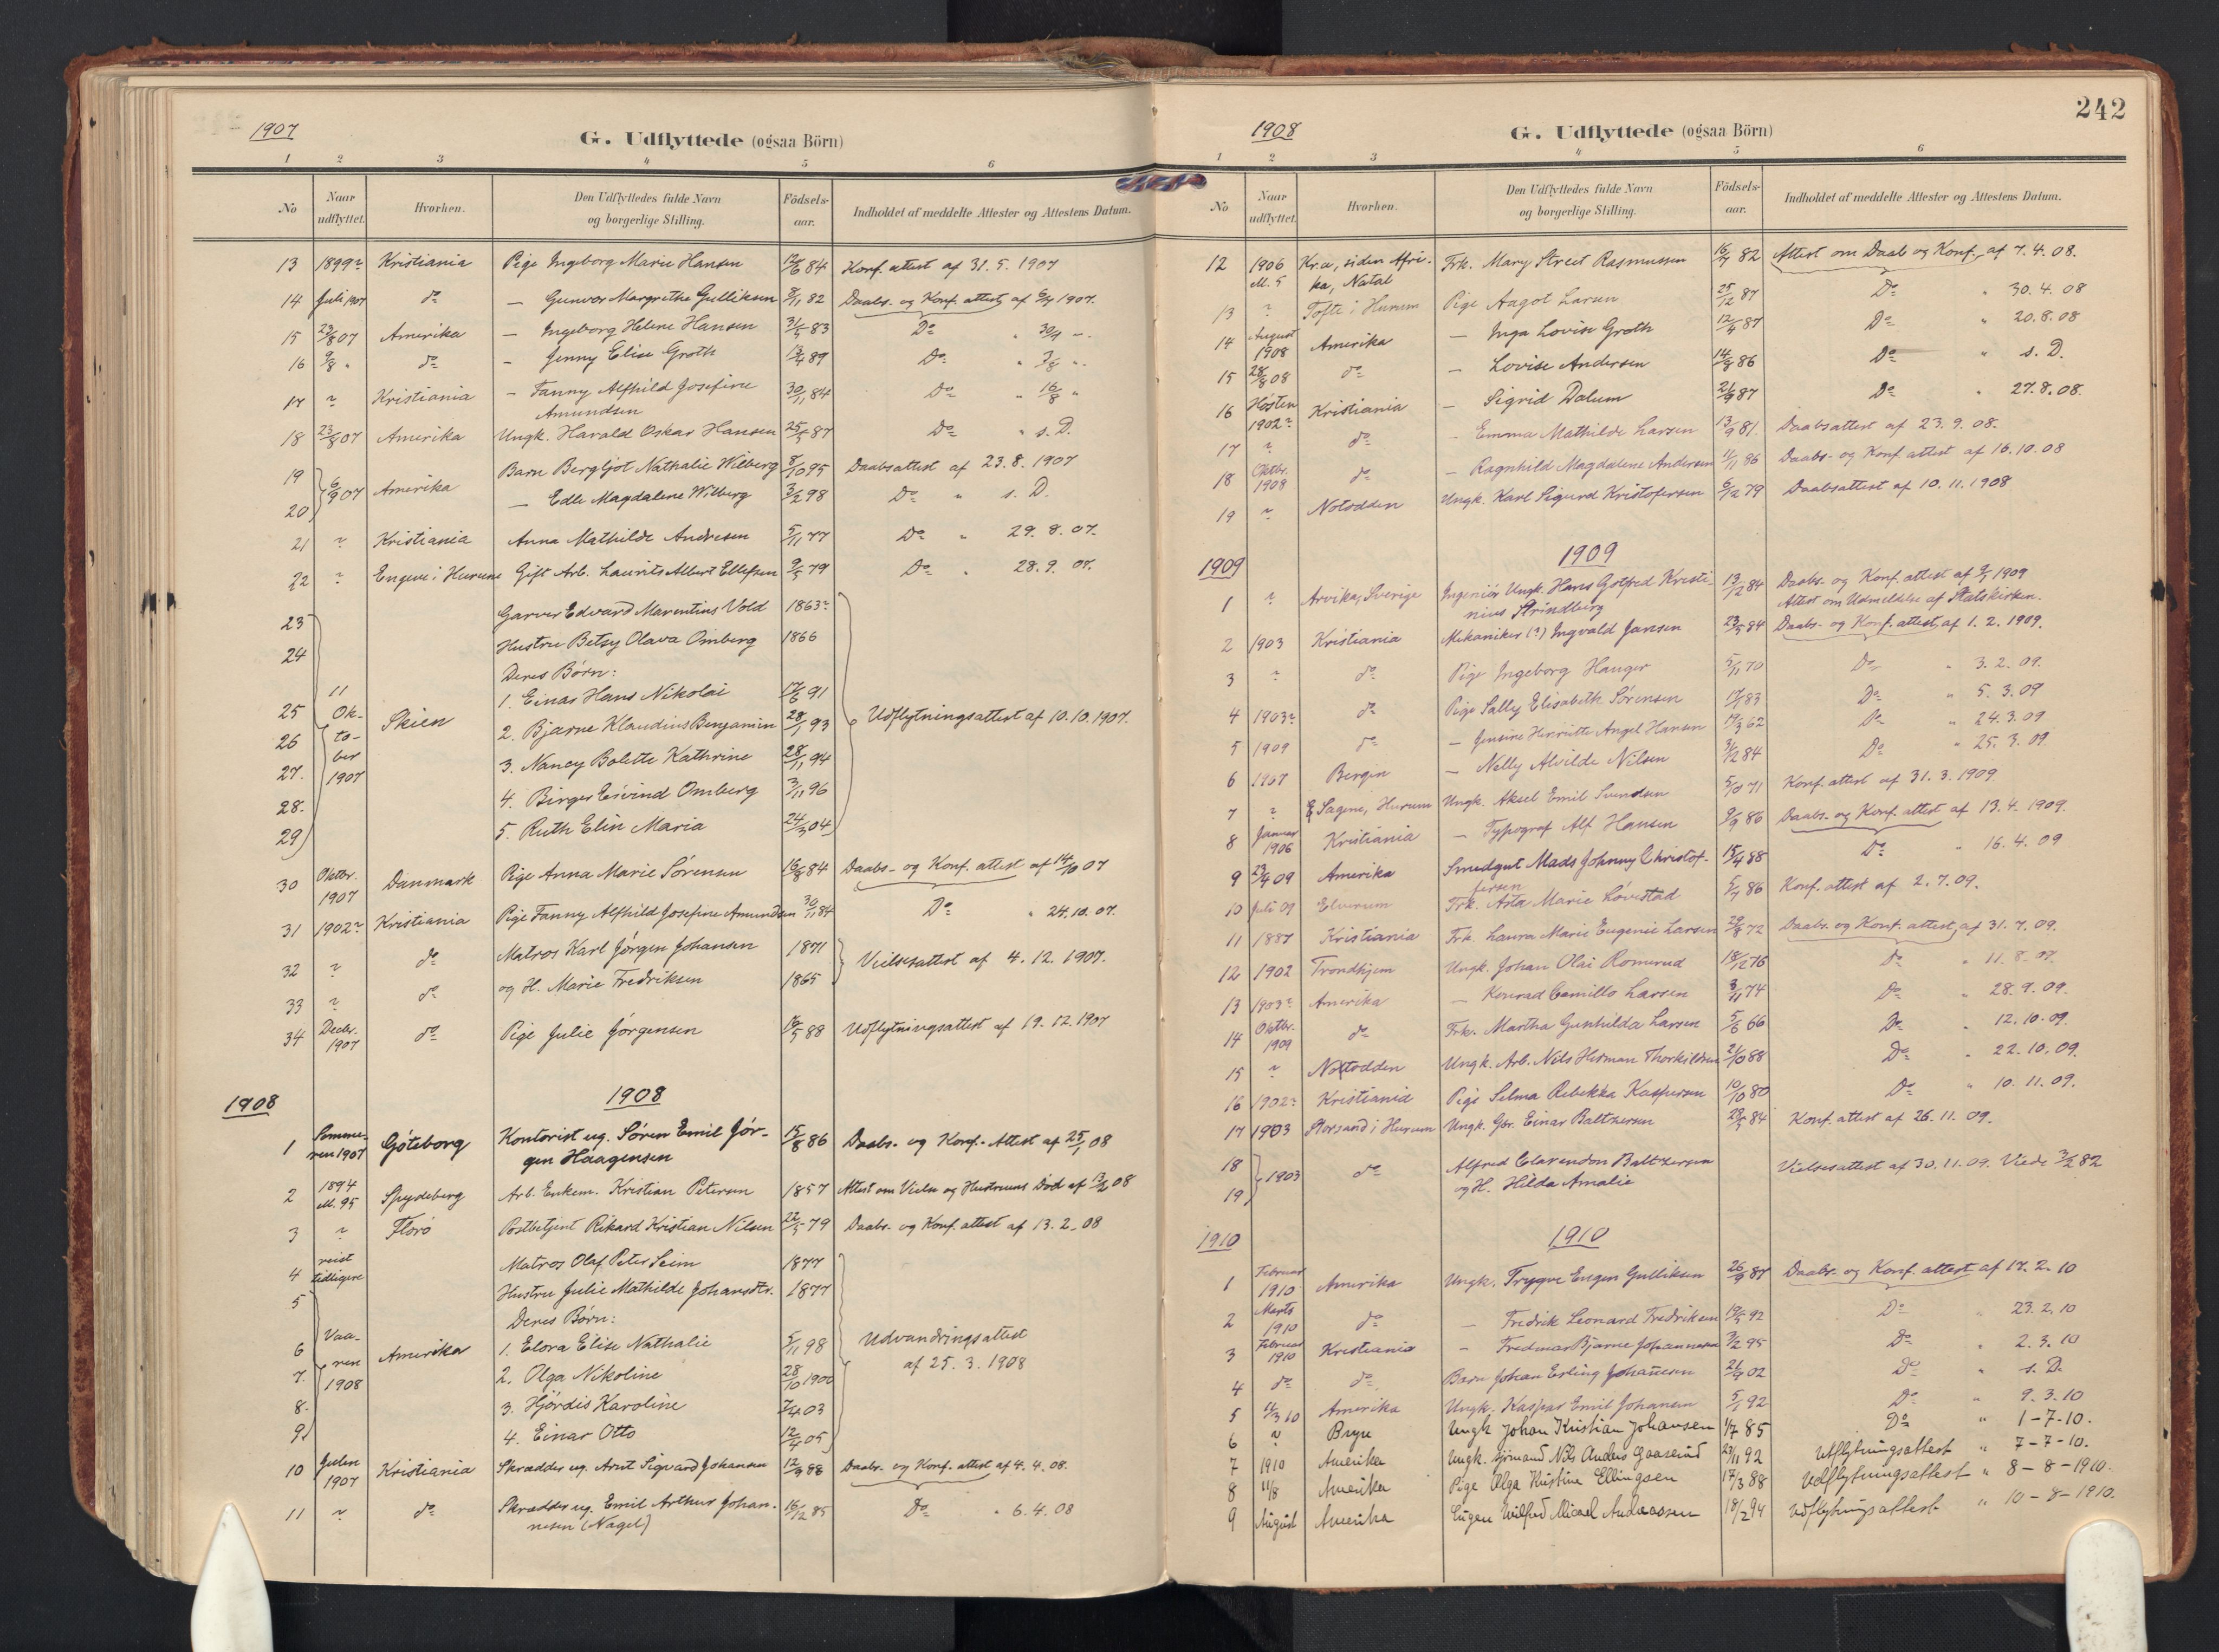 1907
G. Udflyttede (ogsaa Börn)
1 2 3 4 5 6
No Naar udflyttet. Hvorhen. Den Udflyttedes fulde Navn og borgerlige Stilling. Födsels-aar. Indholdet af meddelte Attester og Attestens Datum.
13 1899? Kristiania Pige Ingeborg Marie Hansen 12/6 84 Konf. attest af 31. 5. 1907
14 Juli 1907 do — Gunvor Margrethe Gulliksen 8/11 82 Daabs- og Konf. attest af 6/7 1907.
15 23/8 07 Amerika — Ingeborg Helene Hansen 31/5 83 Do " 30/7 -.
16 9/8 " do — Jenny Elise Groth 13/4 89 Do " 7/8 -.
17 ? Kristiania — Fanny Alfhild Josefine 30/11 84 Do " 16/8 "
Amundsen
18 23/8 07 Amerika Ungk. Harald Oskar Hansen 25/5 87 Do " s. D.
19 6/9 07 Amerika Barn Bergljot Nathalie Wilberg 8/10 95 Daabsattest af 23. 8. 1907
20 — Edle Magdalene Wilberg 3/2 98 Do " s. D.
21 ? Kristiania Anna Mathilde Andresen 5/11 77 Do " 29. 8. 07.
22 ? Engene i Hurum Gift Arb. Laurits Albert Ellefsen 9/5 79 Do " 28. 9. 07.
23 Garver Edvard Marentius Vold 1863?
24 Hustru Betsy Olava Omberg 1866
Deres Børn:
25 11 Ok- Skien 1. Einar Hans Nikolai 17/6 91 Udflytningsattest af 10. 10. 1907.
26 to- 2. Bjarne Klaudius Benjamin 28/1 93
27. ber 3. Nancy Bolette Kathrine 28/11 94
28. 1907 4. Birger Eivind Omberg 3/11 96
29 5. Ruth Elin Maria 24/3 04
30 Oktbr. 1907 Danmark Pige Anna Marie Sørensen 16/8 84 Daabs- og Konf. attest af 14/10 07
31 1902? Kristiania Pige Fanny Alfhild Josefine Amundsen 30/11 84 Do " 24. 10. 07.
32 ? do Matros Karl Jørgen Johansen 1871 Vielsesattest af 4. 12. 1907.
33 ? do og H. Marie Fredriksen 1865
34 Decbr. 1907 do Pige Julie Jørgensen 16/5 88 Udflytningsattest af 19. 12. 1907
1908 1908
1 Sommeren 1907 Göteborg Kontorist ug. Søren Emil Jør- 15/8 86 Daabs- og Konf.- Attest af 25/1 08
gen Haagensen
2 1894 el. 95 Spydeberg Arb. Enkem. Kristian Petersen 1857 Attest om Vielse og Hustruens Død af 12/2 08
3 ? Florö Postbetjent Rikard Kristian Nilsen 22/5 79 Daabs- og Konf. attest af 13. 2. 08
4 reist tidligere Matros Olaf Peter Seim 1877
5 Hustru Julie Mathilde Johansdtr. 1877
Deres Børn:
6 Vaa- Amerika 1. Elora Elise Nathalie 5/11 98 Udvandringsattest
7. ren 2. Olga Nikoline 28/10 1900 af 25. 3. 1908
8. 1908 3. Hjördis Karoline 7/4 03
9 4. Einar Otto 12/4 05
10 Julen 1907 Kristiania Skrædder ug. Arnt Sigvard Johansen 12/9 88 Daabs- og Konf. attest af 4. 4. 08.
11 ? do Skrædder ug. Emil Arthur Johan- 16/12 85 Do " 6. 4. 08
nesen (Nagel)
242
1908
G. Udflyttede (ogsaa Börn)
1 2 3 4 5 6
No Naar udflyttet. Hvorhen. Den Udflyttedes fulde Navn og borgerlige Stilling. Födsels-aar. Indholdet af meddelte Attester og Attestens Datum.
12 1906 el. 5 Kr.a, siden Afri- Frk. Mary Street Rasmussen 16/7 82 Attest om Daab og Konf. af 7. 4. 08.
ka, Natal
13 ? Tofte i Hurum Pige Aagot Larsen 25/12 87 Do " 30. 4. 08
14 August 1908 Amerika — Inga Lovise Groth 12/4 87 Do " 20. 8. 08
15 28/8 08 do — Lovise Andersen 14/8 86 Do " s. D.
16 Høsten 1902? Kristiania — Sigrid Dalum 21/9 87 Do " 27. 8. 08.
17 ? do — Emma Mathilde Larsen 13/9 81. Daabsattest af 23. 9. 08.
18 Oktbr. 1908 do — Ragnhild Magdalene Andersen 4/11 86 Daabs- og Konf. attest af 16. 10. 08
19 ? Notodden Ungk. Karl Sigurd Kristofersen 6/12 79 Daabsattest af 10. 11. 1908
1909 1909
1 ? Arvika, Sverige Ingeniør Ungk. Hans Gotfred Kristi- 13/12 84 Daabs- og Konf. attest af 9/1 1909
nius Strindberg Attest om Udmeldelse af Statskirken.
2 1903 Kristiania Mekaniker (?) Ingvald Jansen 23/5 84 Daabs- og Konf. attest af 1. 2. 1909.
3 ? do Pige Ingeborg Hauger 5/11 70 Do " 3. 2. 09.
4 1903? do Pige Sally Elisabeth Sørensen 83 Do " 5. 3. 09
5 1909 do — Jensine Henriette Angel Hansen 19/3 62 Do " 24. 3. 09
6 1907 Bergen — Nelly Alvilde Nilsen 31/12 84 Do " 25. 3. 09.
7 ? Sagene, Hurum Ungk. Aksel Emil Svendsen 5/10 71 Konf. attest af 31. 3. 1909
8 Januar 1906 Kristiania — Typograf Alf Hansen 9/9 86 Daabs- og Konf. attest af 13. 4. 1909.
9 23/4 09 Amerika Smedgut Mads Johnny Christof- 15/4 88 Do " 16. 4. 09
fersen
10 Juli 09 Elverum Frk. Asta Marie Løvestad 5/7 86 Konf. attest af 2. 7. 09.
11 1887 Kristiania Frk. Laura Marie Eugenie Larsen 29/8 72 Daabs- og Konf. attest af 31. 7. 09.
12 1902 Trondhjem Ungk. Johan Olai Romerud 18/12 76 Do " 11. 8. 09.
13 1903? Amerika — Konrad Camillo Larsen 3/11 74 Do " 28. 9. 09.
14 Oktbr. 1909 do Frk. Martha Gunhilda Larsen 5/6 66 Do " 12. 10. 09.
15 ? Notodden Ungk. Arb. Nils Herman Thorkildsen 21/10 88 Do " 22. 10. 09.
16 1902? Kristiania Pige Selma Rebekka Kaspersen 10/10 80 Do " 10. 11. 09.
17 1903 Storsand i Hurum Ungk. Gbr. Einar Baltzersen 28/5 84 Konf. attest af 26. 11. 09.
18 1903 do Alfred Clarendon Baltzersen Vielsesattest af 30. 11. 09. Viede 3/2 82
19 og H. Hilda Amalie
1910 1910
1 Februar 1910 Amerika Ungk. Trygve Eugen Gulliksen 26/9 87 Daabs- og Konf. attest af 17. 2. 10
2 Marts 1910 do — Fredrik Leonard Fredriksen 19/5 92 Do " 23. 2. 10
3 Februar 1910 Kristiania — Fredmar Bjarne Johannesen 3/2 95 Do " 2. 3. 10
4 do do Barn Johan Erling Johanesen 21/9 02 Do " s. D.
5 11/3 10 Amerika Ungk. Kaspar Emil Johansen 5/1 92 Do " 9. 3. 10
6 ? Bryn Ungk Johan Kristian Johansen 1/7 85 Do " 1-7-10.
7 1910 Amerika Ungk. sjömand Nils Anders Gaaserud 23/11 92 Utflytningsattest " 7-7-10.
8 11/8 Amerika Pige Olga Kristine Ellingsen 17/3 88 Udflytningsattest " 8-8-1910.
9 August Amerika Eugen Wilfred Micael Andreassen 18/2 94 Udflytningsattest " 10-8-1910.